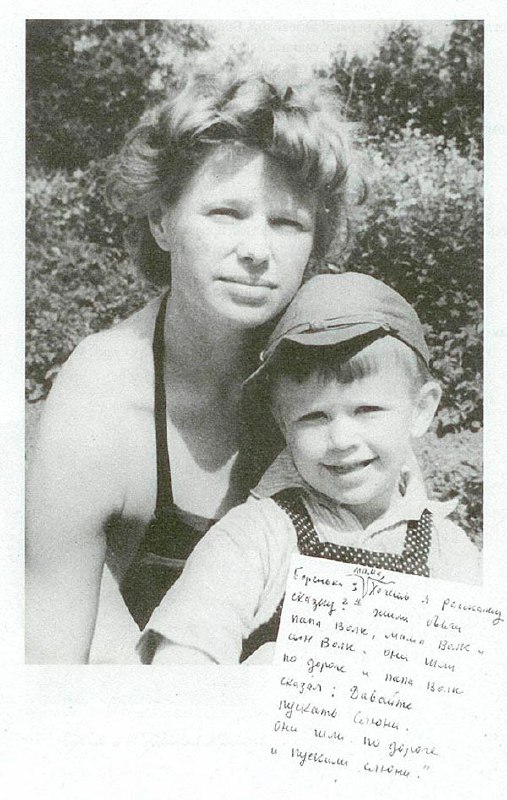 мама,
Боренька 3 Хочешь я расскажу
сказку? Жили были
папа Волк, мама Волк и
сын Волк. Они шли
по дороге и папа Волк
сказал: Давайте
пускать слюни.
Они шли по дороге
и пускали слюни."